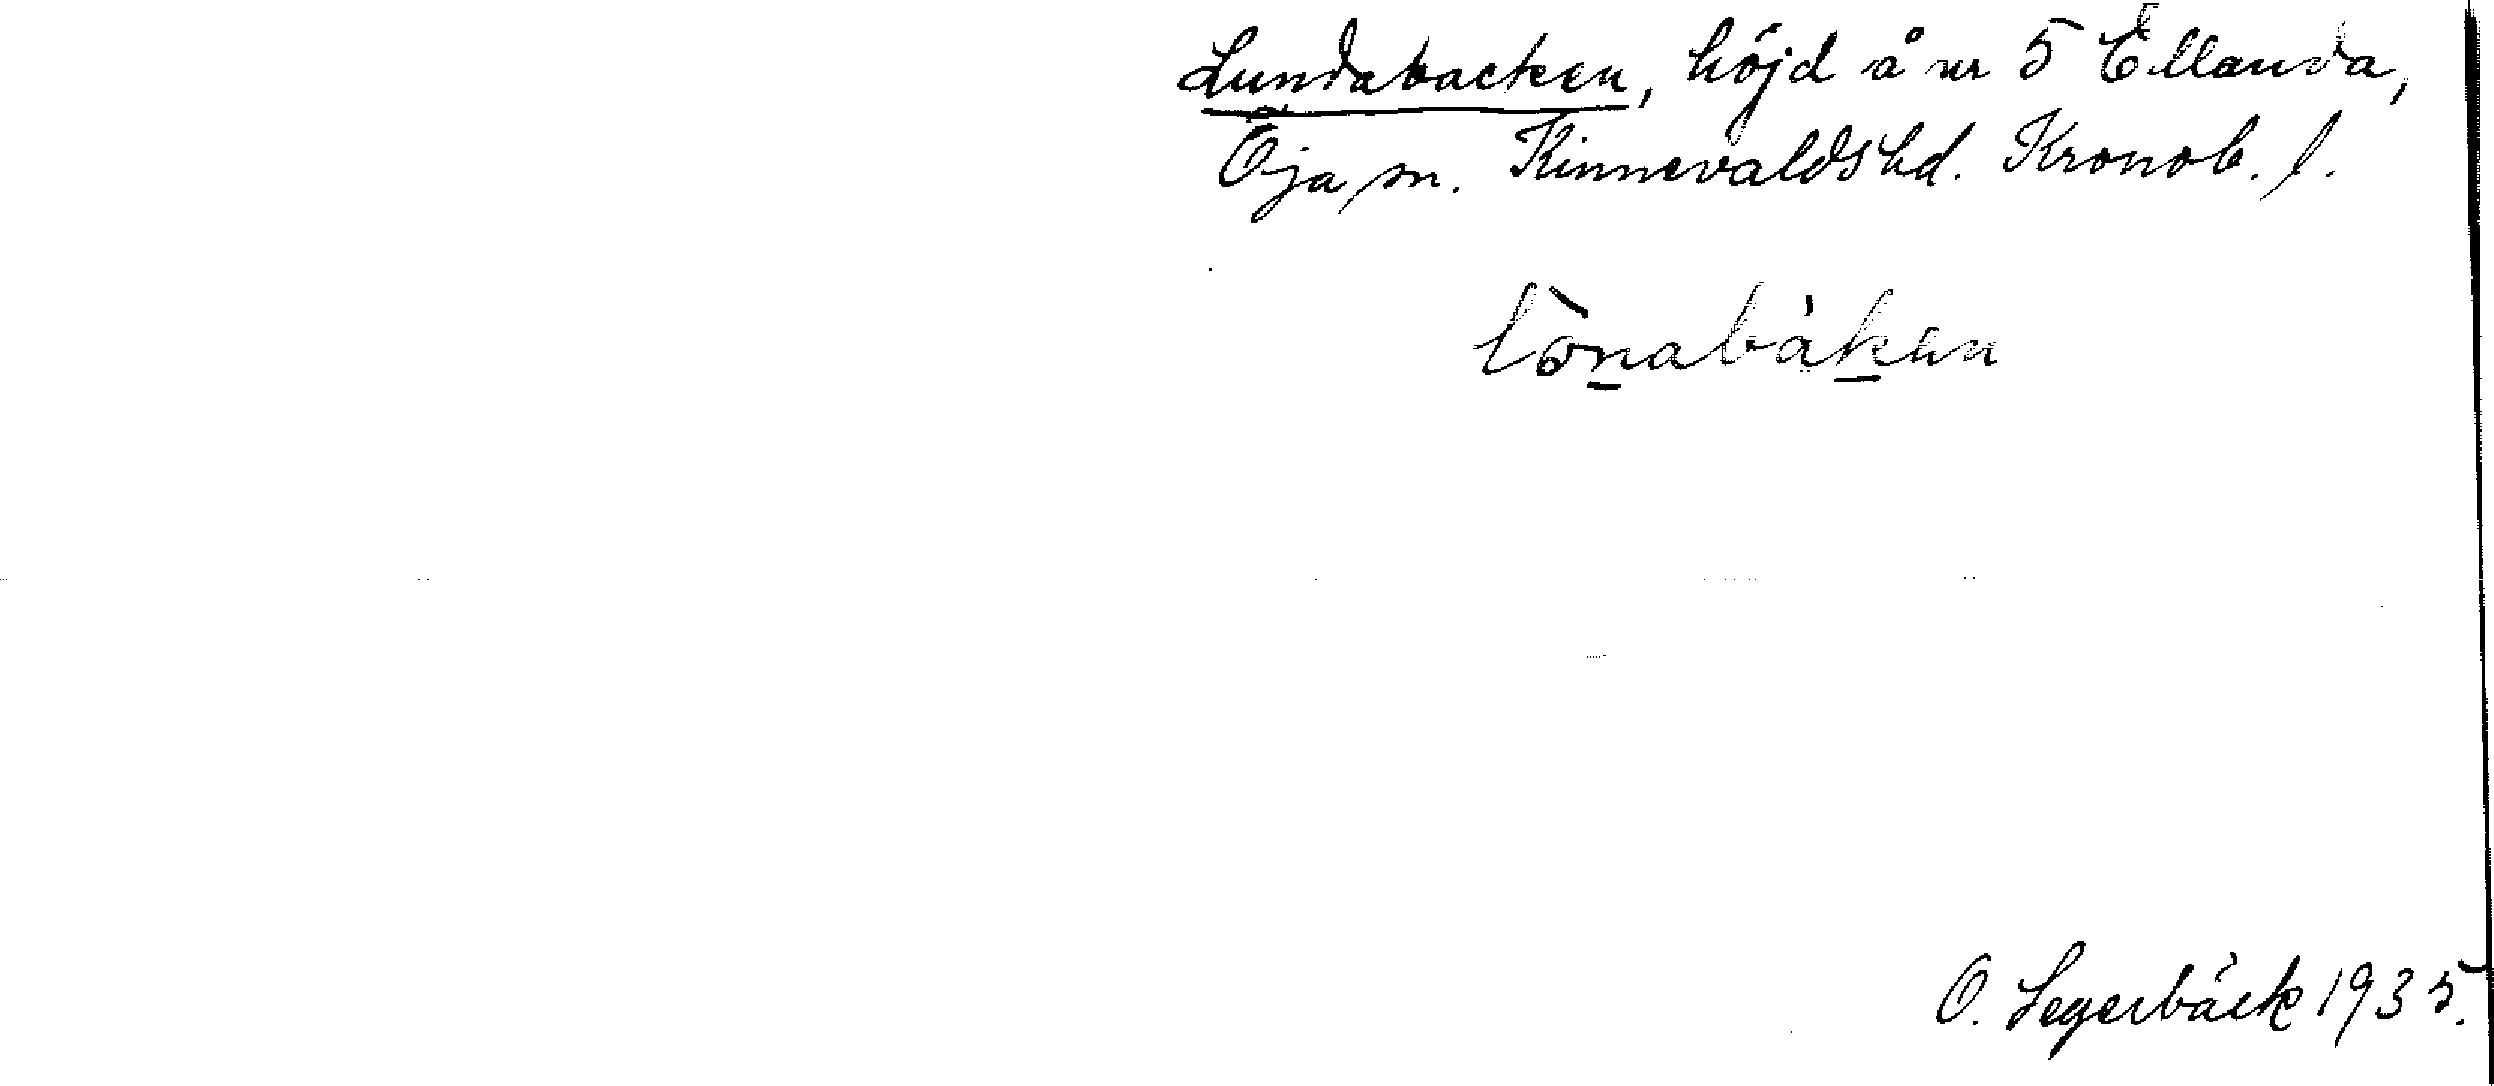 Lundabacken, höjd å nr 5 Ellanda,
Öja sn. Kinnevalds hd. Kronob. l.
O. Segerbäck 1935.